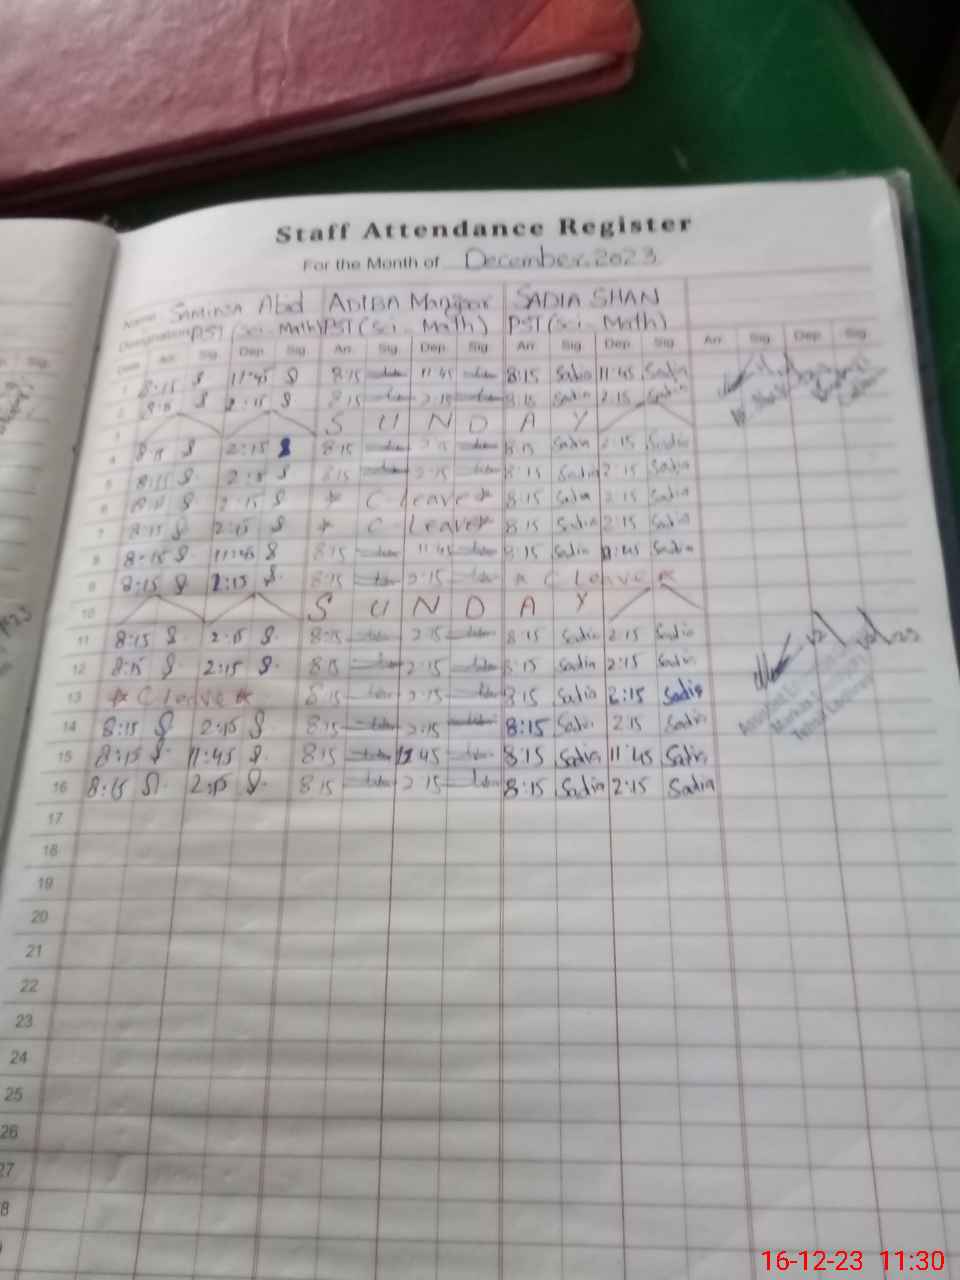 Staff Attendance Register
For the Month of December, 2023
Name Abid ADIBA SADIA SHAN
Designation PST (Sci - Math) PST (Sci - Math) PST (Sci - Math)
Date Arr. Sig. Dep. Sig. Arr. Sig. Dep. Sig. Arr. Sig. Dep. Sig. Arr. Sig. Dep. Sig.
1 8:15 S 11:45 S 8:15 11:45 8:15 Sadia 11:45 Sadia
2 8:15 S 2:15 S 8:15 2:15 8:15 Sadia 2:15 Sadia
3 S U N D A Y
4 8:15 S 2:15 S 8:15 2:15 8:15 Sadia 2:15 Sadia
5 8:15 S 2:15 S 8:15 2:15 8:15 Sadia 2:15 Sadia
6 8:15 S 2:15 S * C leave * 8:15 Sadia 2:15 Sadia
7 8:15 S 2:15 S * C Leave * 8:15 Sadia 2:15 Sadia
8 8:15 S 11:45 S 8:15 11:45 8:15 Sadia 11:45 Sadia
9 8:15 S 2:15 S 8:15 2:15 * C leave *
10 S U N D A Y
11 8:15 S 2:15 S 8:15 2:15 8:15 Sadia 2:15 Sadia
12 8:15 S 2:15 S 8:15 2:15 8:15 Sadia 2:15 Sadia
13 * C leave * 8:15 2:15 8:15 Sadia 2:15 Sadia
14 8:15 S 2:15 S 8:15 2:15 8:15 Sadia 2:15 Sadia
15 8:15 S 11:45 S 8:15 11:45 8:15 Sadia 11:45 Sadia
16 8:15 S 2:15 S 8:15 2:15 8:15 Sadia 2:15 Sadia
17
18
19
20
21
22
23
24
25
26
27
8
16-12-23 11:30